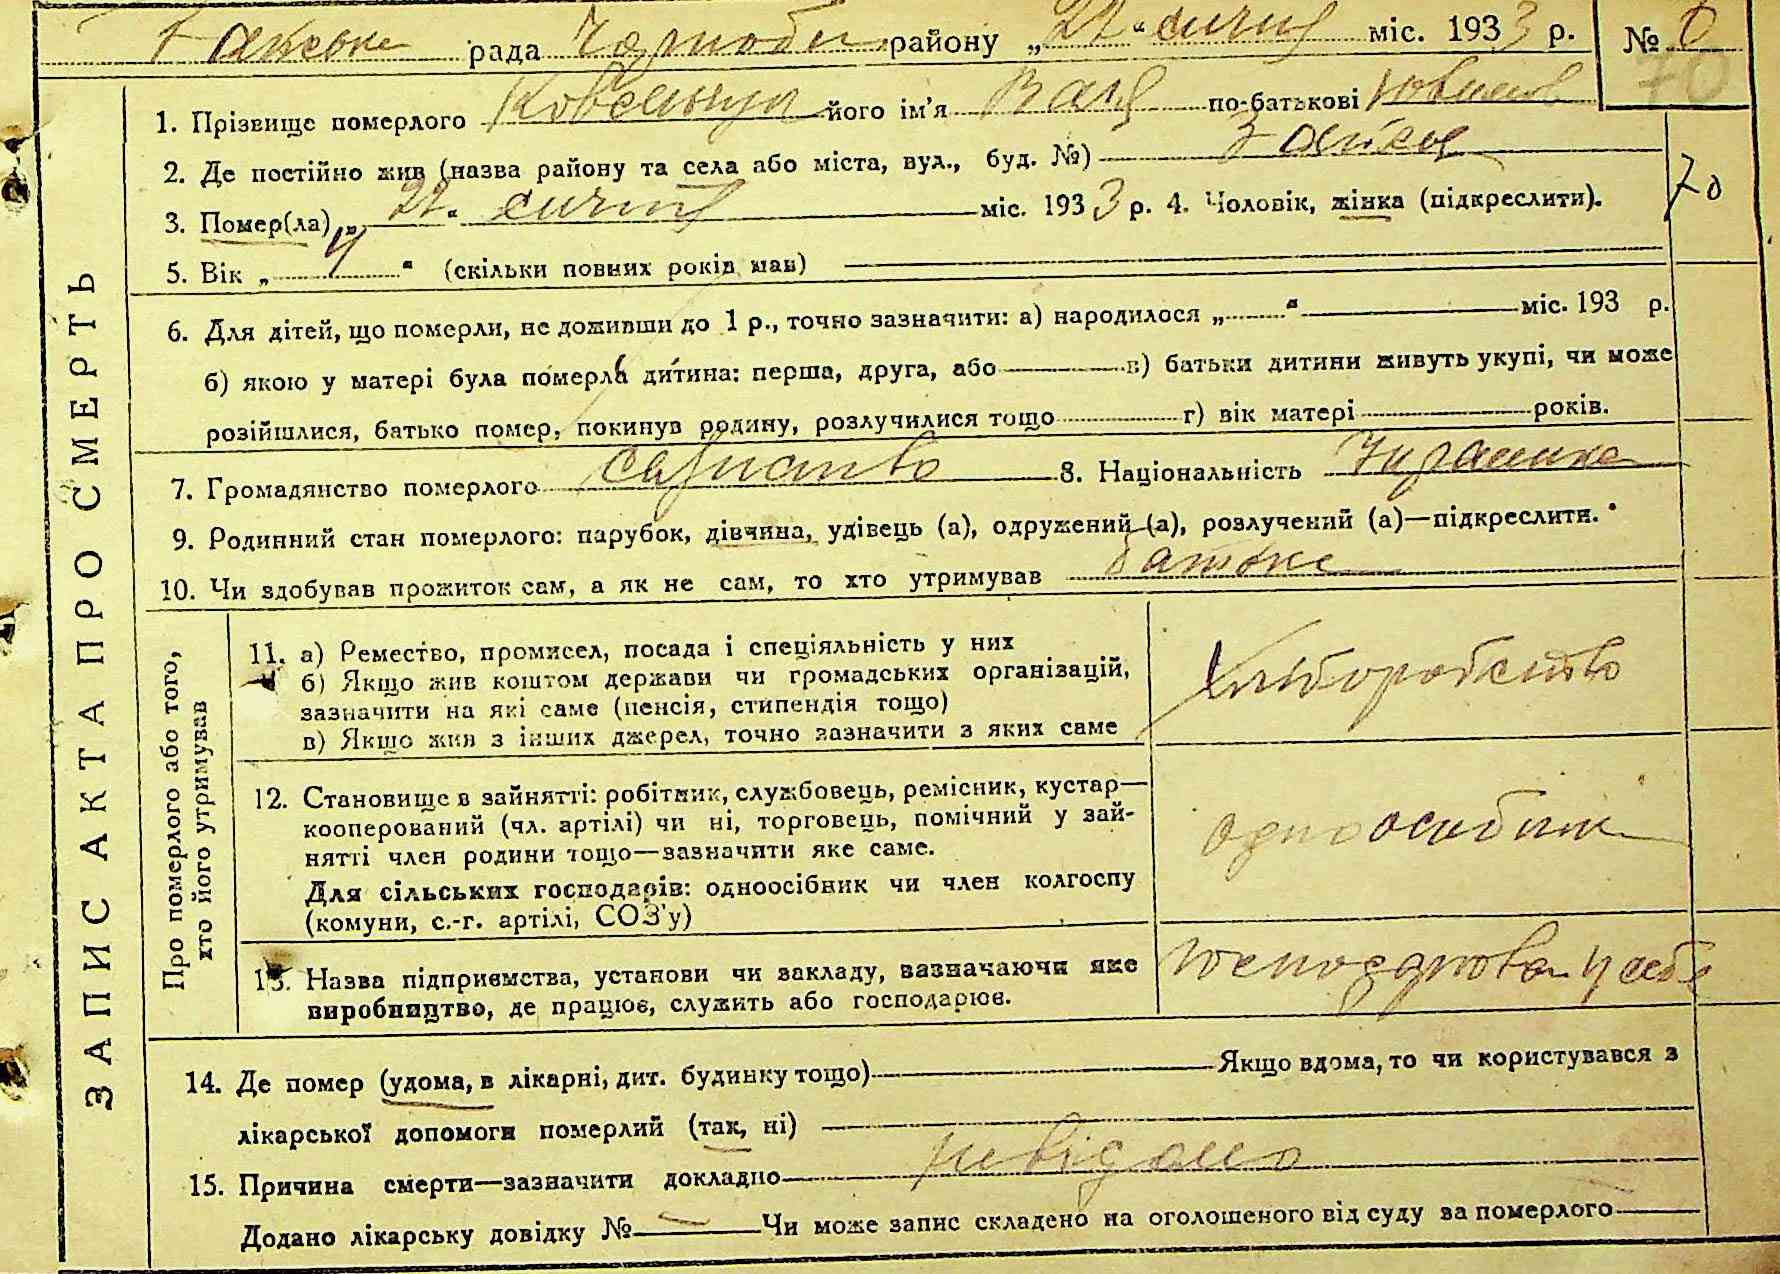 рада району „22“ січня міс. 1933 р. №
1. Прізвище померлого його ім'я по-батькові
2. Де постійно жив (назва району та села або міста, вул., буд. №)
70
3. Помер(ла) „22“ січня міс. 1933 р. 4. Чоловік, жінка (підкреслити).
5. Вік „4“ (скільки повних років мав)
6. Для дітей, що померли, не доживши до 1 р., точно зазначити: а) народилося „ “ міс. 193 р.
б) якою у матері була померла дитина: перша, друга, або в) батьки дитини живуть укупі, чи може
розійшлися, батько помер, покинув родину, розлучилися тощо г) вік матері років.
7. Громадянство померлого 8. Національність
9. Родинний стан померлого: парубок, дівчина, удівець (а), одружений (а), розлучений (а)—підкреслити.
10. Чи здобував прожиток сам, а як не сам, то хто утримував батько
ЗАПИС АКТА ПРО СМЕРТЬ
Про померлого або того,
хто його утримував
11. а) Ремество, промисел, посада і спеціяльність у них
б) Якщо жив коштом держави чи громадських організацій,
зазначити на які саме (пенсія, стипендія тощо)
в) Якщо жив з інших джерел, точно зазначити з яких саме
хліборобство
12. Становище в зайнятті: робітник, службовець, ремісник, кустар—
кооперований (чл. артілі) чи ні, торговець, помічний у зай-
нятті член родини тощо—зазначити яке саме.
Для сільських господарів: одноосібник чи член колгоспу
(комуни, с.-г. артілі, СОЗ'у)
одноосібник
13. Назва підприємства, установи чи закладу, зазначаючи яке
виробництво, де працює, служить або господарює.
14. Де помер (удома, в лікарні, дит. будинку тощо) Якщо вдома, то чи користувався з
лікарської допомоги померлий (так, ні)
15. Причина смерти—зазначити докладно невідомо
Додано лікарську довідку № — Чи може запис складено на оголошеного від суду за померлого